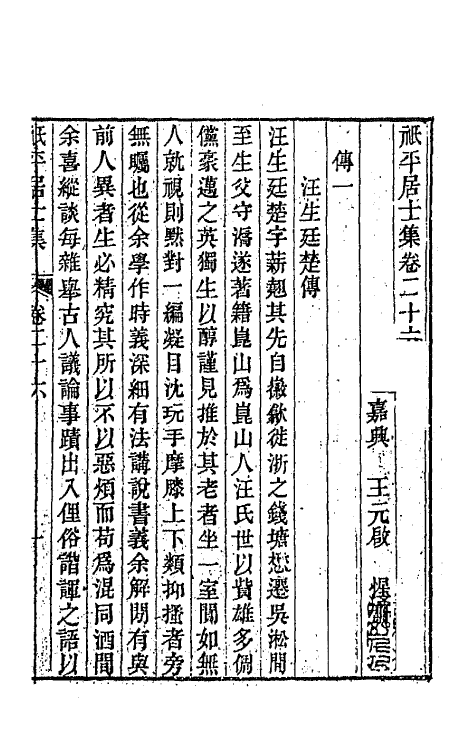 祗平居士集卷二十六
嘉興　王元啟　惺齋
傳一
汪生廷楚傳
汪生廷楚字薪翹其先自徽歙徙浙之錢塘愁遷吳淞間
至生父守濡遂著籍崑山為崑山人汪氏世以貲雄多倜
儻豪邁之英獨生以醇謹見推於其老者坐一室闃如無
人就視則黙對一編凝目沈玩手摩膝上下類抑搔者旁
無矚也從余學作時義深細有法講說書義余解閒有與
前人異者生必精究其所以不以惡煩而苟為混同酒間
余喜縱談每雜舉古人議論事蹟出入俚俗諧諢之語以
祗平居士集　卷二十六　一